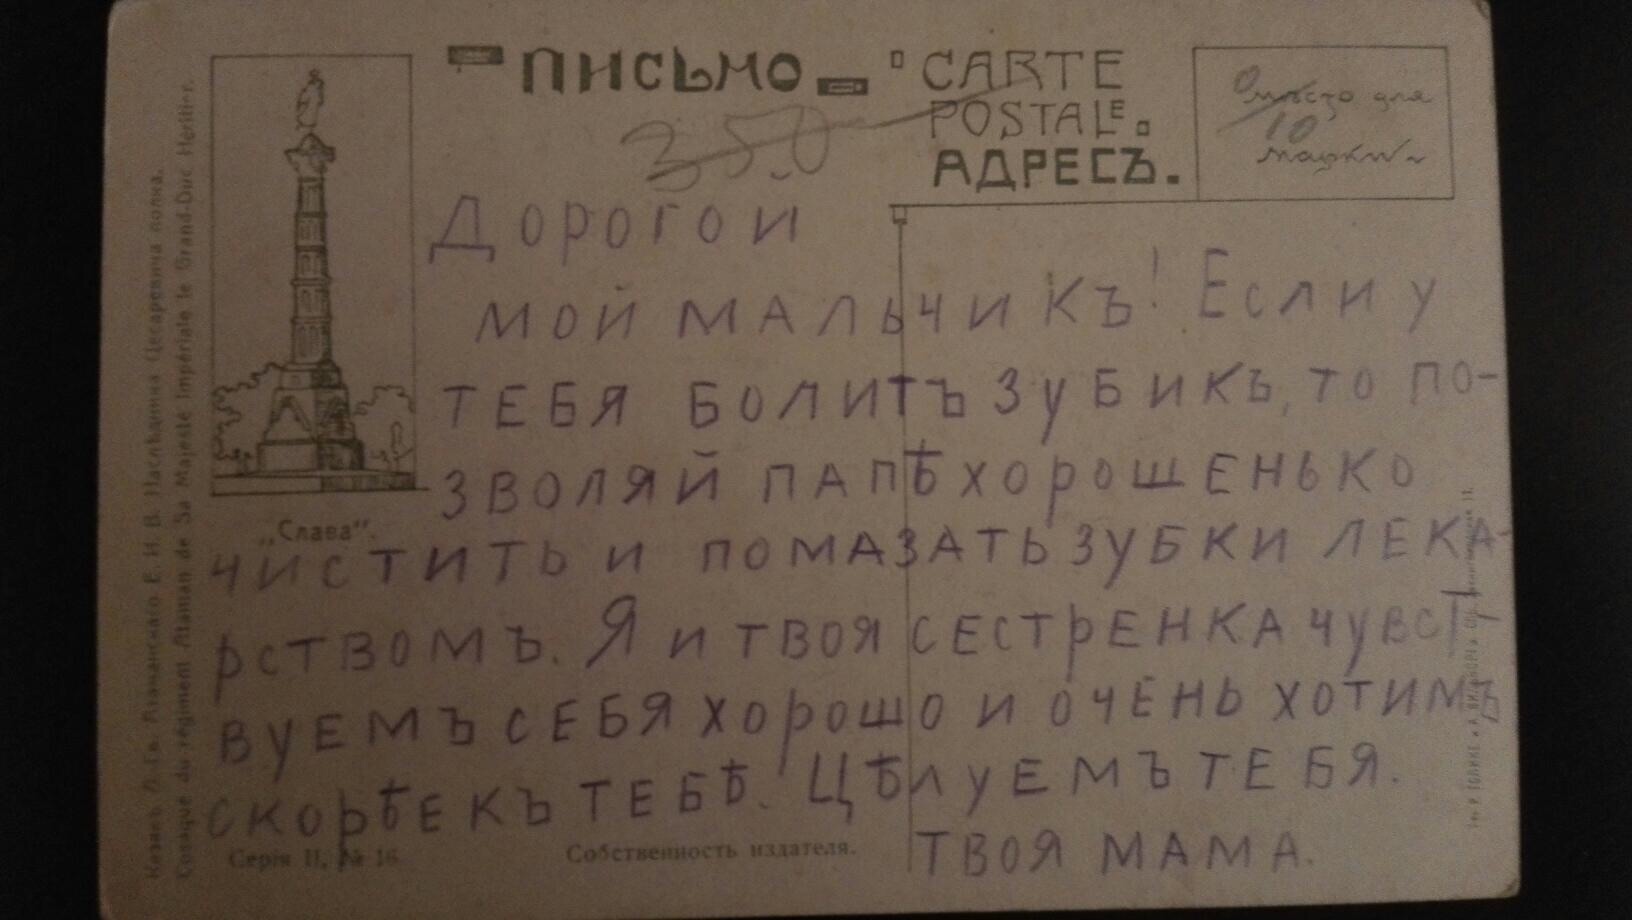 ПИСЬМО
CARTE
POSTALE.
АДРЕСЪ.
мѣсто для
марки
10
350
ДОРОГОЙ
МОЙ МАЛЬЧИКЪ! ЕСЛИ У
ТЕБЯ БОЛИТЪ ЗУБИКЪ, ТО ПО-
ЗВОЛЯЙ ПАПѢ ХОРОШЕНЬКО
ЧИСТИТЬ И ПОМАЗАТЬ ЗУБКИ ЛЕКА-
РСТВОМЪ. Я И ТВОЯ СЕСТРЕНКА ЧУВСТ-
ВУЕМЪ СЕБЯ ХОРОШО И ОЧЕНЬ ХОТИМЪ
СКОРѢЕ КЪ ТЕБѢ. ЦѢЛУЕМЪ ТЕБЯ.
ТВОЯ МАМА.
„Слава".
Серія II, № 16
Собственность издателя.
Казакъ Л.-Гв. Атаманскаго Е. И. В. Наслѣдника Цесаревича полка.
Cosaque du régiment Ataman de Sa Majesté Impériale le Grand-Duc Héritier.